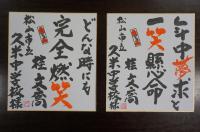 年中夢求と
一笑懸命
桂文喬
松山市立
久米中学校様
どんな時にも
完全燃笑
桂文喬
松山市立
久米中学校様